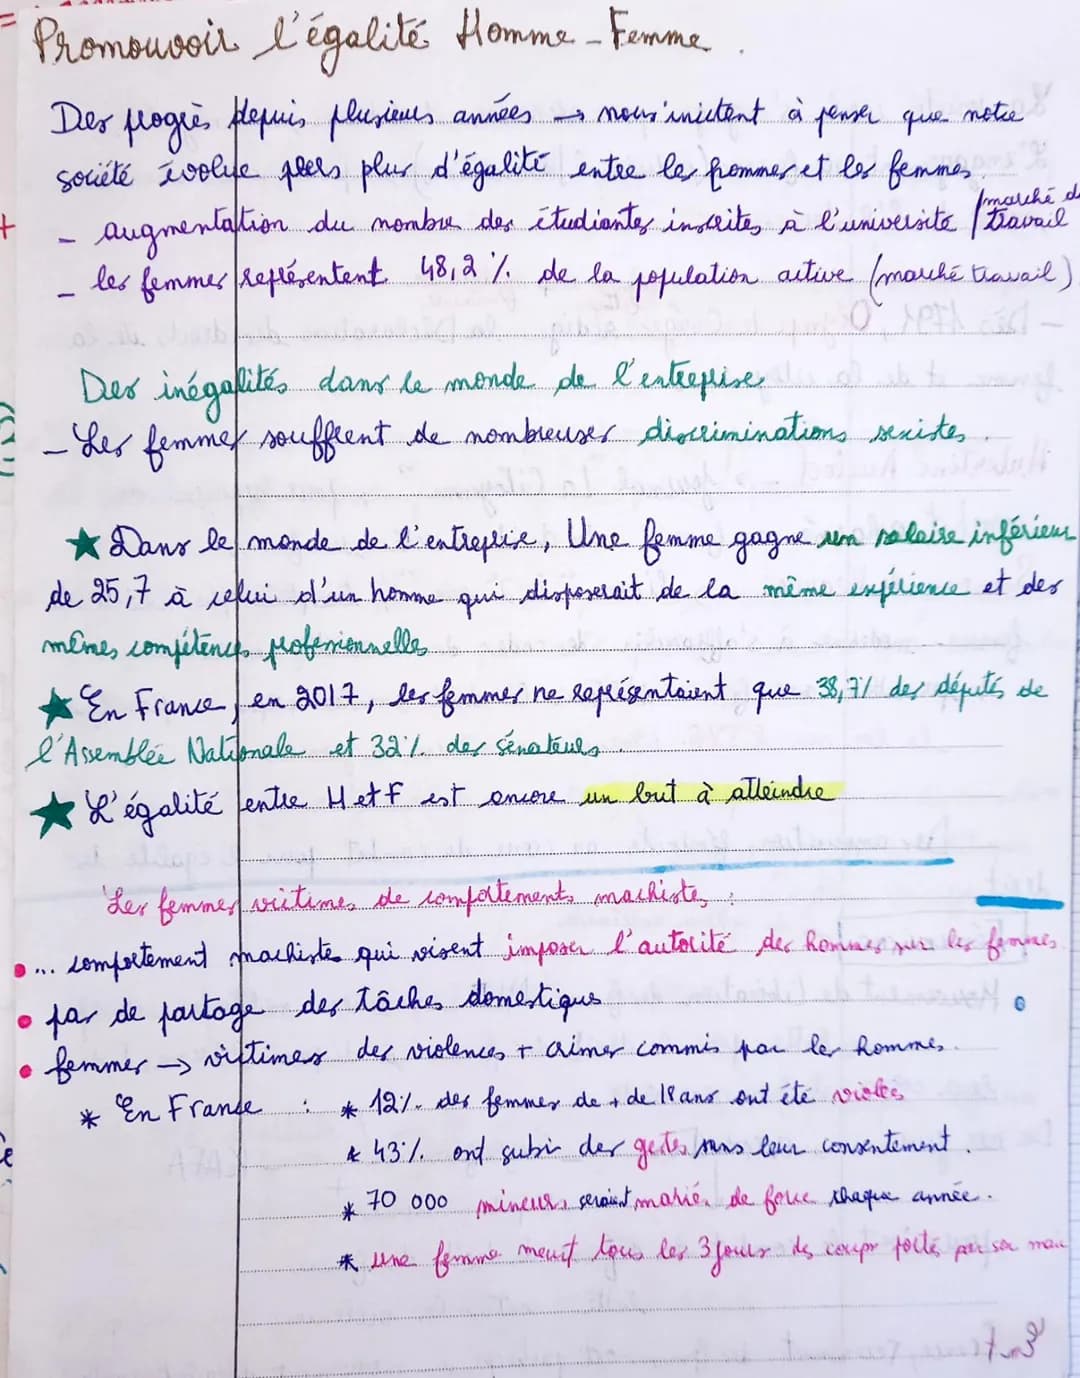 Promouvoir l'égalité Homme - Femme.
Des progrès depuis plusieurs années → nous inictent à penser que notre
société évolue vers plus d'égalité entre les hommes et les femmes.
- augmentation du nombre des étudiantes inscrites à l'université / marché de travail
- les femmes représentent 48,2 % de la population active (marché travail)
Des inégalités dans le monde de l'entreprise
- Les femmes souffrent de nombreuses discriminations sexistes.
★ Dans le monde de l'entreprise, Une femme gagne un salaire inférieur
de 25,7 à celui d'un homme qui disposerait de la même expérience et des
mêmes compétences professionnelles
★ En France, en 2017, les femmes ne représentaient que 38,7% des députés de
l'Assemblée Nationale et 32% des sénateurs.
★ L'égalité entre H et F est encore un but à atteindre
Les femmes victimes de comportements machistes :
• ... comportement machiste qui visent imposer l'autorité des hommes sur les femmes
• pas de partage des tâches domestiques
• femmes → victimes des violences + crimes commis par les hommes.
* En France : * 12% des femmes de + de 18 ans ont été violés
* 43% ont subir des gestes sans leur consentement.
* 70 000 mineurs seraient marié de force chaque année.
* une femme meurt tous les 3 jours des coups portés par son mari